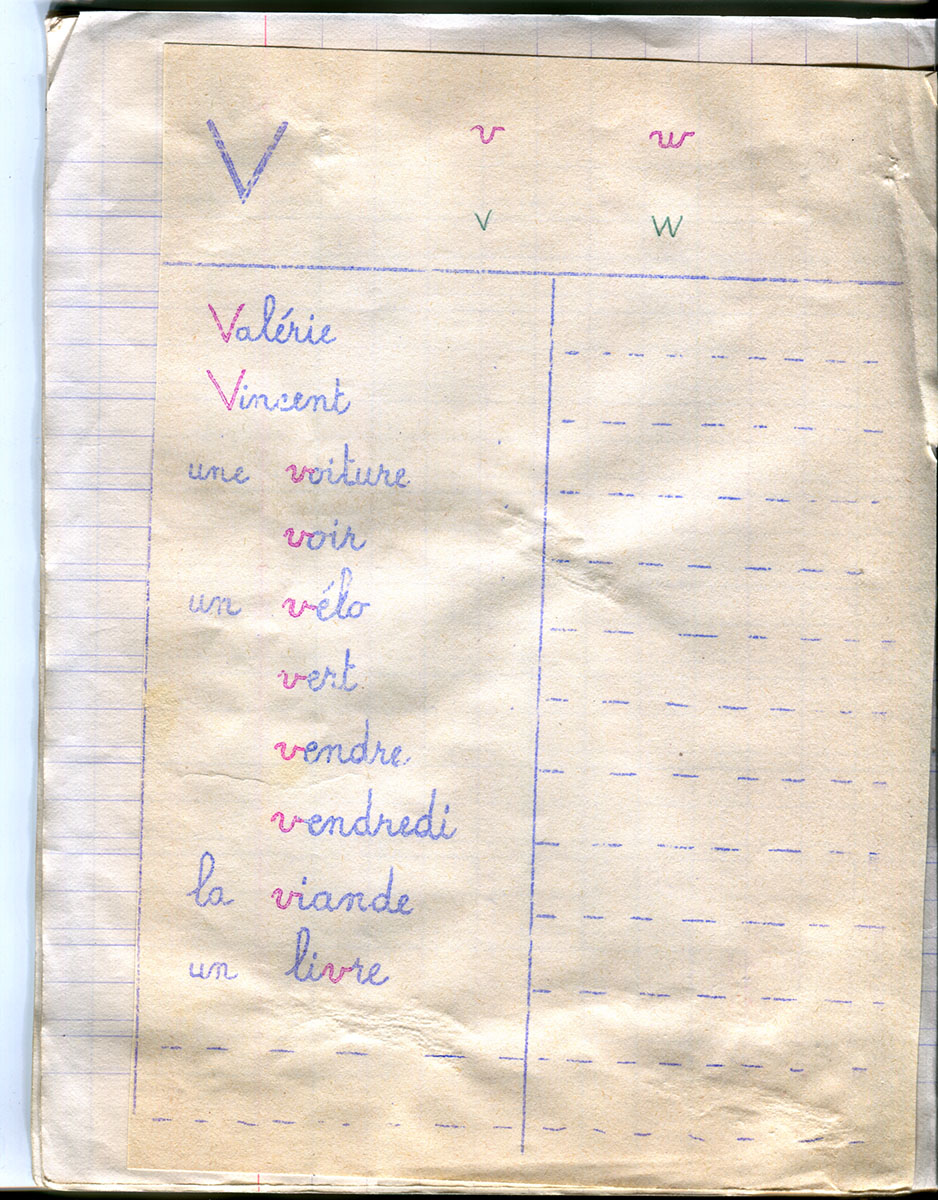 V v w
v w
Valérie
Vincent
une voiture
voir
un vélo
vert
vendre
vendredi
la viande
un livre